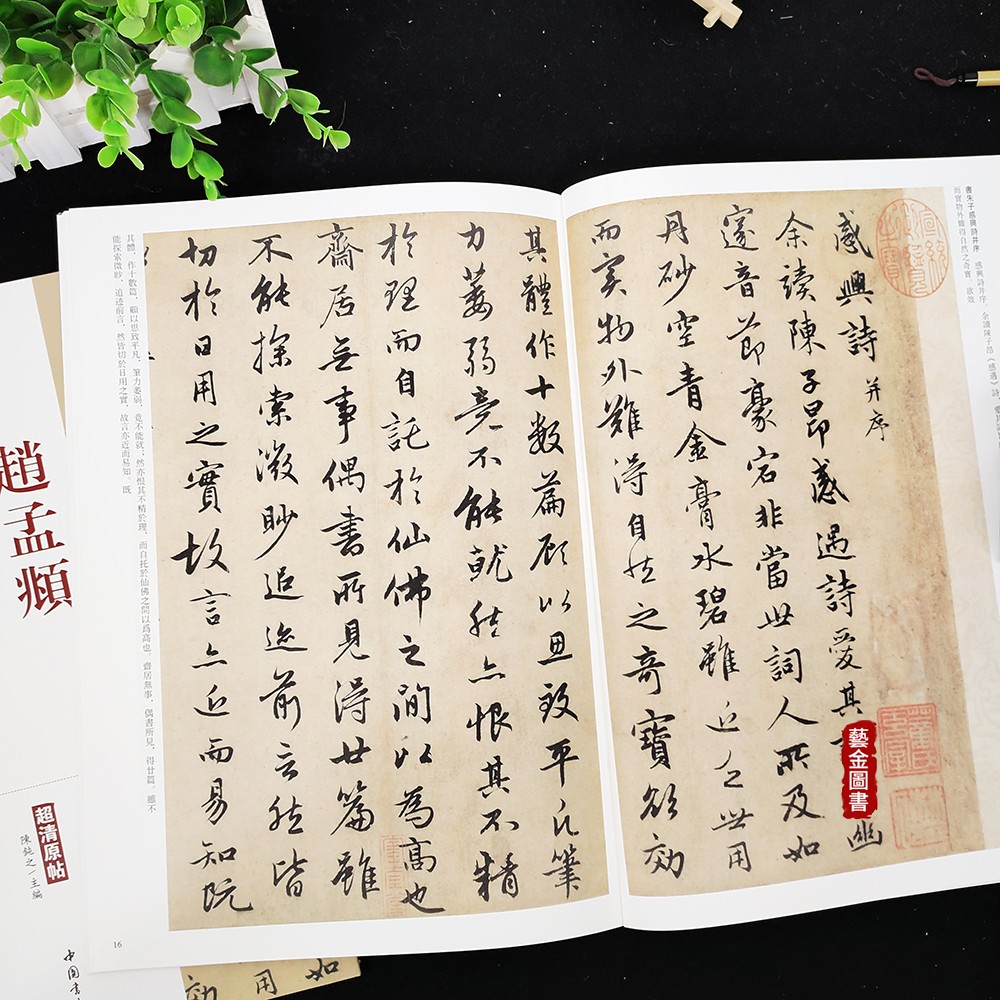 書朱子感興詩并序　感興詩并序。余讀陳子昂《感遇》詩，
而實物外難得自然之奇寶，欲效
感興詩并序
余讀陳子昂感遇詩愛其幽
邃音節豪宕非當世詞人所及如
丹砂空青金膏水碧雖近乏世用
而實物外難得自然之奇寶欲効
其體作十數篇顧以思致平凡筆
力萎弱竟不能就然亦恨其不精
於理而自託於仙佛之間以為高也
齋居無事偶書所見得廿篇雖
不能探索微眇追迹前言然皆
切於日用之實故言亦近而易知既
其體，作十數篇，顧以思致平凡，筆力萎弱，竟不能就；然亦恨其不精於理，而自托於仙佛之間以爲高也。齋居無事，偶書所見，得廿篇。雖不
能探索微眇，追迹前言，然皆切於日用之實，故言亦近而易知。既
16
藝金圖書
趙孟頫
超清原帖
陳鈍之/主編
中國書
如
用
効